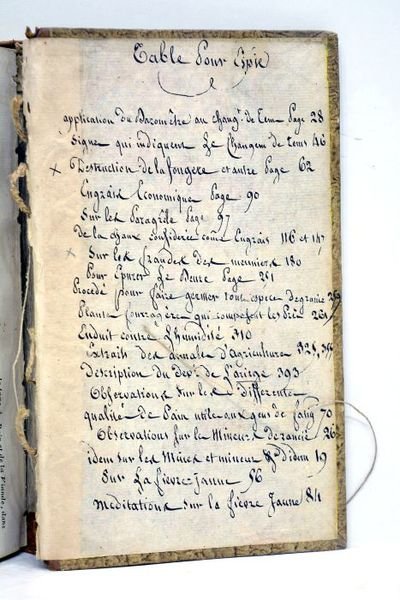 Table Pour Copie
application du Baromètre au changt. de Tems Page 28
Signes qui indiquent Le Changem de tems 46
x Destruction de la fougere et autre Page 62
Engrais Economique Page 90
Sur les Paragrêle Page 97
De la chaux considerée come Engrais 116 et 147
x Sur les fraudes des meuniers 180
Pour Epurer Le Beure Page 251
Procédé pour faire germer tout espece de graine
Plante fourragere qui composent les Prés 261
Enduit contre L'humidité 310
Extraits des annales d'agriculture 328,
Description du Dept. de L'ariege 393
Observations Sur les Differente
qualité de Pain utile aux gens de 70
Observations sur le Mineur de rancié 26
idem sur les Mines et mineur d'idem 19
Sur La fievre Jaune 56
Meditations sur la fievre Jaune 84